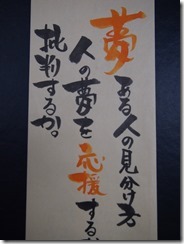 夢ある人の見分け方
人の夢を応援するか
批判するか。